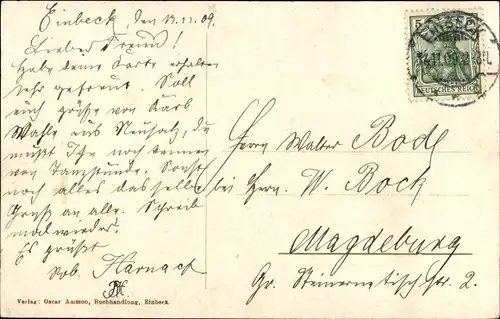 Einbeck, den 13.11.09.
Lieber Freund!
Habe deine Karte erhalten
sehr gefreut. Soll
euch grüßen von Karl
Wahle aus Neusalz, du
mußt Ihn noch kennen
von Tanzstunde. Sonst
noch alles dasselbe
Gruß an alle. Schreib
mal wieder.
Es grüßt
Rob. Harnack
RH.
Herrn Walter Bode
bei Herrn. W. Bock
Magdeburg
Gr. Steinernetischstr. 2.
EINBECK
DEUTSCHES REICH
5
Verlag: Oscar Ammon, Buchhandlung, Einbeck.